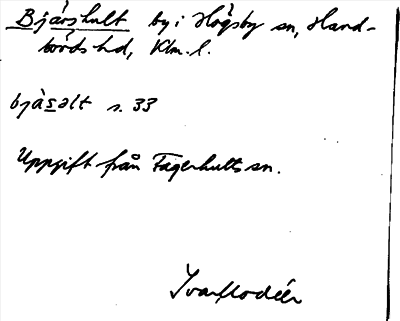 Bjärshult by i Högsby sn, Hand-
börds hd, Klm. l.
bjàsəlt s. 33
Uppgift från Fagerhults sn.
Ivar Modéer